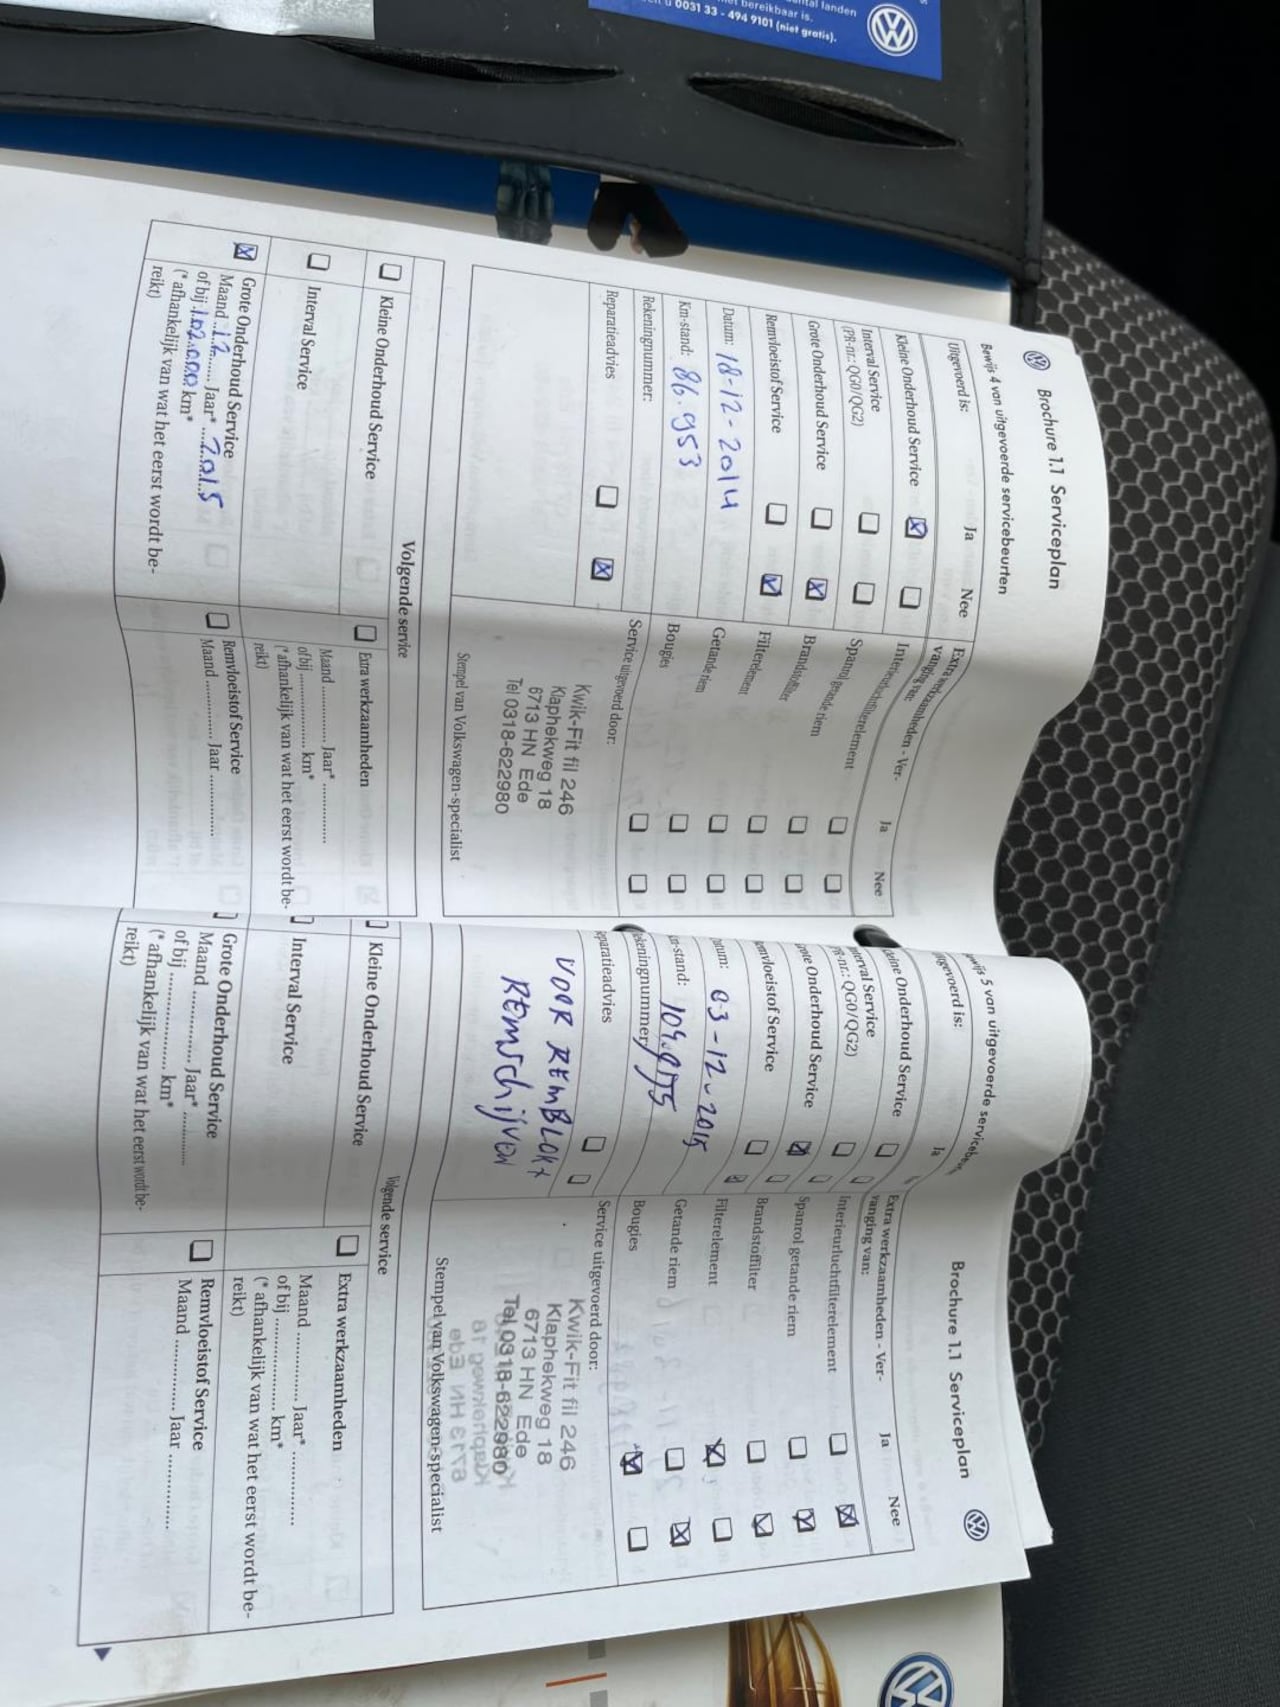 ntal landen
bereikbaar is.
u 0031 33 - 494 9101 (niet gratis).
Brochure 1.1 Serviceplan
Bewijs 4 van uitgevoerde servicebeurten
Uitgevoerd is:
Ja
Nee
Kleine Onderhoud Service
Interval Service
(PR-nr.: QG0/QG2)
Grote Onderhoud Service
Remvloeistof Service
Datum: 18-12-2014
Km-stand: 86.953
Rekeningnummer:
Reparatieadvies
Extra werkzaamheden - Ver-
vanging van:
Ja
Nee
Interieurluchtfilterelement
Spanrol getande riem
Brandstoffilter
Filterelement
Getande riem
Bougies
Service uitgevoerd door:
Kwik-Fit fil 246
Klaphekweg 18
6713 HN Ede
Tel 0318-622980
Stempel van Volkswagen-specialist
Volgende service
Kleine Onderhoud Service
Interval Service
Grote Onderhoud Service
Maand ..12........ Jaar* ....2015
of bij .102.000 km*
(* afhankelijk van wat het eerst wordt be-
reikt)
Extra werkzaamheden
Maand .............. Jaar* ..............
of bij .............. km*
(* afhankelijk van wat het eerst wordt be-
reikt)
Remvloeistof Service
Maand .............. Jaar ..............
Brochure 1.1 Serviceplan
ewijs 5 van uitgevoerde servicebeu
itgevoerd is:
Ja
leine Onderhoud Service
terval Service
PR-nr.: QG0/QG2)
rote Onderhoud Service
emvloeistof Service
atum: 03-12-2015
m-stand:
ekeningnummer
eparatieadvies
VOOR REMBLOK+
REMSCHIJVEN
Extra werkzaamheden - Ver-
vanging van:
Ja
Nee
Interieurluchtfilterelement
Spanrol getande riem
Brandstoffilter
Filterelement
Getande riem
Bougies
Service uitgevoerd door:
Kwik-Fit fil 246
Klaphekweg 18
6713 HN Ede
Tel 0318-622980
Stempel van Volkswagen-specialist
Volgende service
Kleine Onderhoud Service
Interval Service
Grote Onderhoud Service
Maand .............. Jaar* ..............
of bij .................. km*
(* afhankelijk van wat het eerst wordt be-
reikt)
Extra werkzaamheden
Maand .............. Jaar* ..............
of bij .................. km*
(* afhankelijk van wat het eerst wordt be-
reikt)
Remvloeistof Service
Maand .............. Jaar ..............